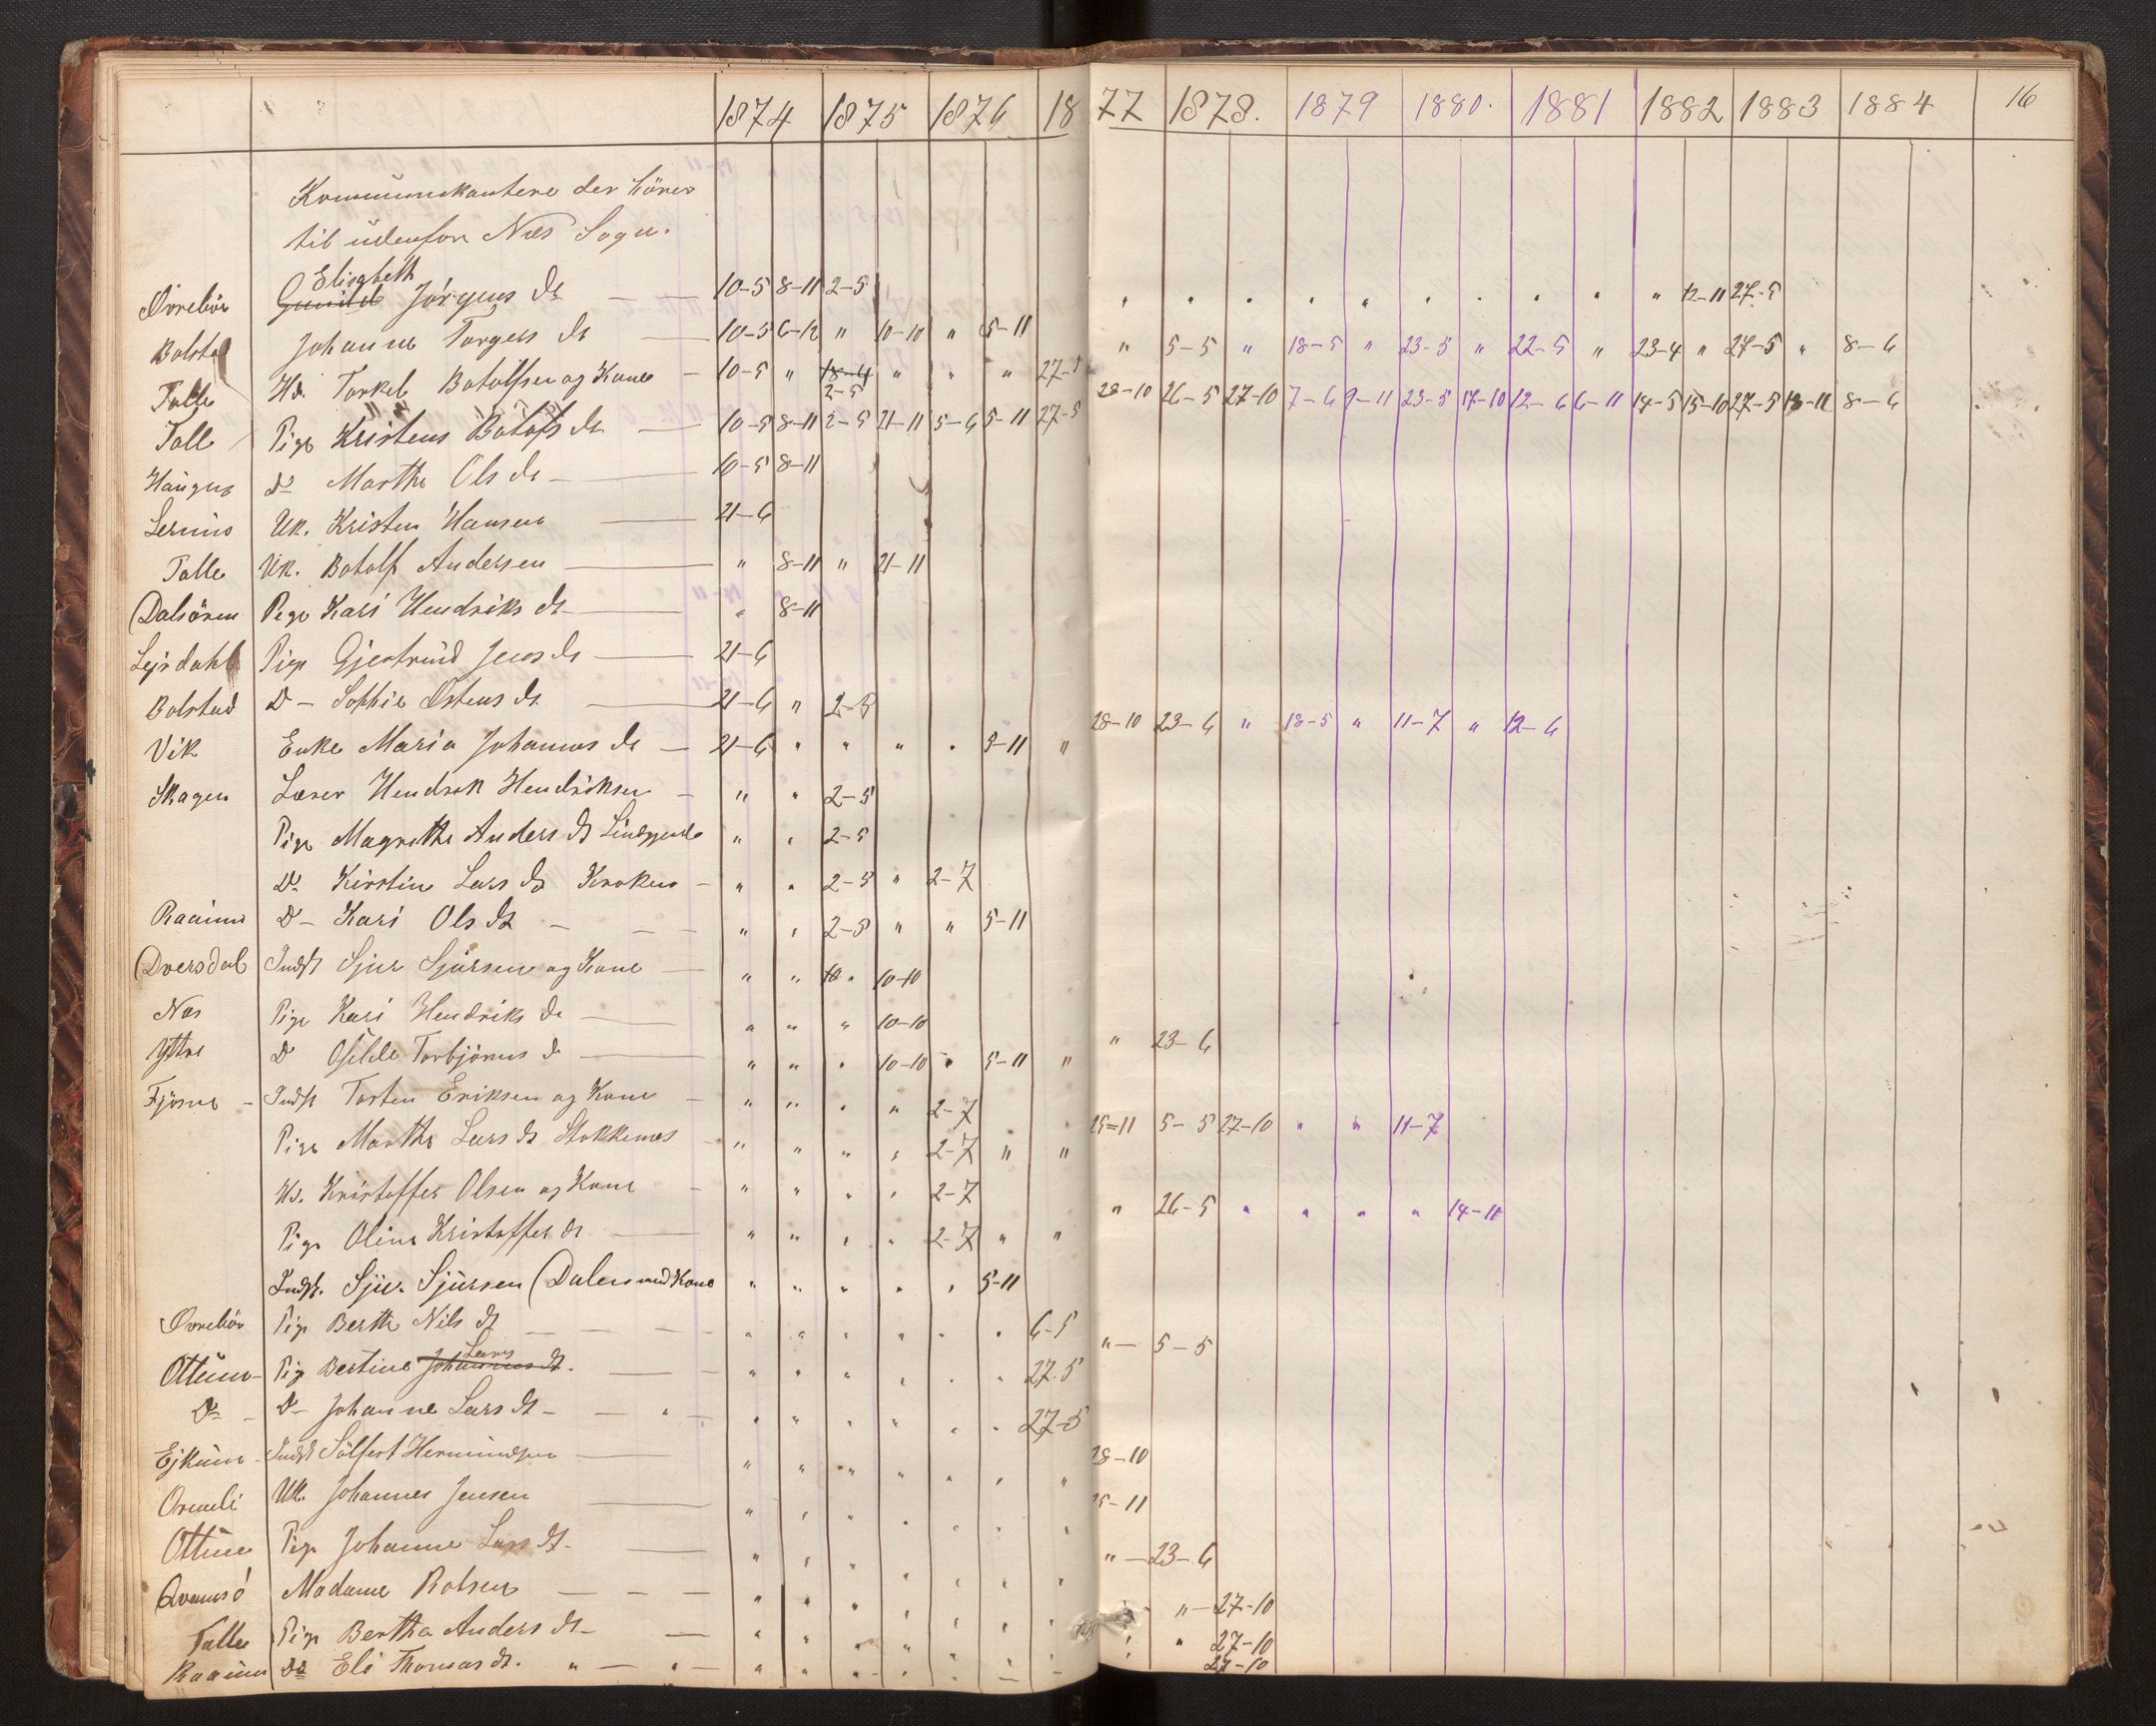 1874 1875 1876 1877 1878. 1879 1880. 1881 1882 1883 1884 16
Kommunikantere der hörer
til udenfor Næs Sogn.
Elisabeth
Øvrebör Gunild Jørgens dr 10-5 8-11 2-5 " " " " " " " " " " 12-11 27-5
Bolstad Johanne Torgers dr 10-5 6-12 " 10-10 " 5-11 " 5-5 " 18-5 " 23-5 " 22-5 " 23-4 " 27-5 " 8-6
Talle Hd. Torkel Botolfsen og Kone 10-5 " 18-4 2-5 " " " 27-5 28-10 26-5 27-10 7-6 9-11 23-5 17-10 12-6 6-11 14-5 15-10 27-5 18-11 8-6
Talle Pige Kristens Botolfs dr 10-5 8-11 2-5 21-11 5-6 5-11 27-5
Haugen D- Marthe Ols dr 10-5 8-11
Uk. Kristen Hansen 21-6
Talle Uk. Botolf Andersen " 8-11 " 21-11
Dalsören Pige Kari Hendriks dr " 8-11
Lejrdahl Pige Gjertrud Jens dr 21-6
Bolstad D- Sophie Østens dr 21-6 " 2-5
Vik Enke Maria Johannes dr 21-6 " " " " 9-11 " 28-10 23-6 " 18-5 " 11-7 " 12-6
Skagen Lærer Hendrik Hendriksen " " 2-5
Pige Magrethe Anders dt " " 2-5
D- Kirstin Lars dt Kroken " " 2-5 " 2-7
Raaum D- Kari Ols dt " " 2-5 " " 5-11
Dversdal Indst Sjur Sjursen og Kone " " 10 " 10-10
Næs Pige Kari Hendriks dr " " " 10-10
Yttri D Torbjörns d " " " 10-10 " 5-11 " " 23-6
Fjösne - Indst Torsten Eriksen og Kone " " " " 2-7
Pige Marthe Lars dt Stokkenæs " " " " 2-7 " " 25-11 5-5 27-10 " " 11-7
Hd. Kristoffer Olsen og Kone " " " " 2-7
Pige Oline Kristoffer dt " " " " 2-7 " " " 26-5 " " " " 14-11
Indst. Sjur Sjursen (Dalen med Kone " " " " " 5-11
Øvrebör Pige Berthe Nils dt " " " " " " 6-5 " 5-5
Lars
Ottum Pige Bertine Johannes dt. " " " " " " 27-5
D- D- Johanne Lars dt " " " " " " 27-5
Ejkum Indst Sölfest Hermundsen " " " " " " " 28-10
Ormeli Uk. Johannes Jensen " " " " " " " 25-11
Ottum Pige Johanne Lars dt. " " " " " " " " 23-6
Qvamsö Madame Rolsen " " " " " " " " 27-10
Talle Pige Bertha Anders dt " " " " " " " " " 27-10
Raaum Do Eli Thomas dt. " " " " " " 27-10